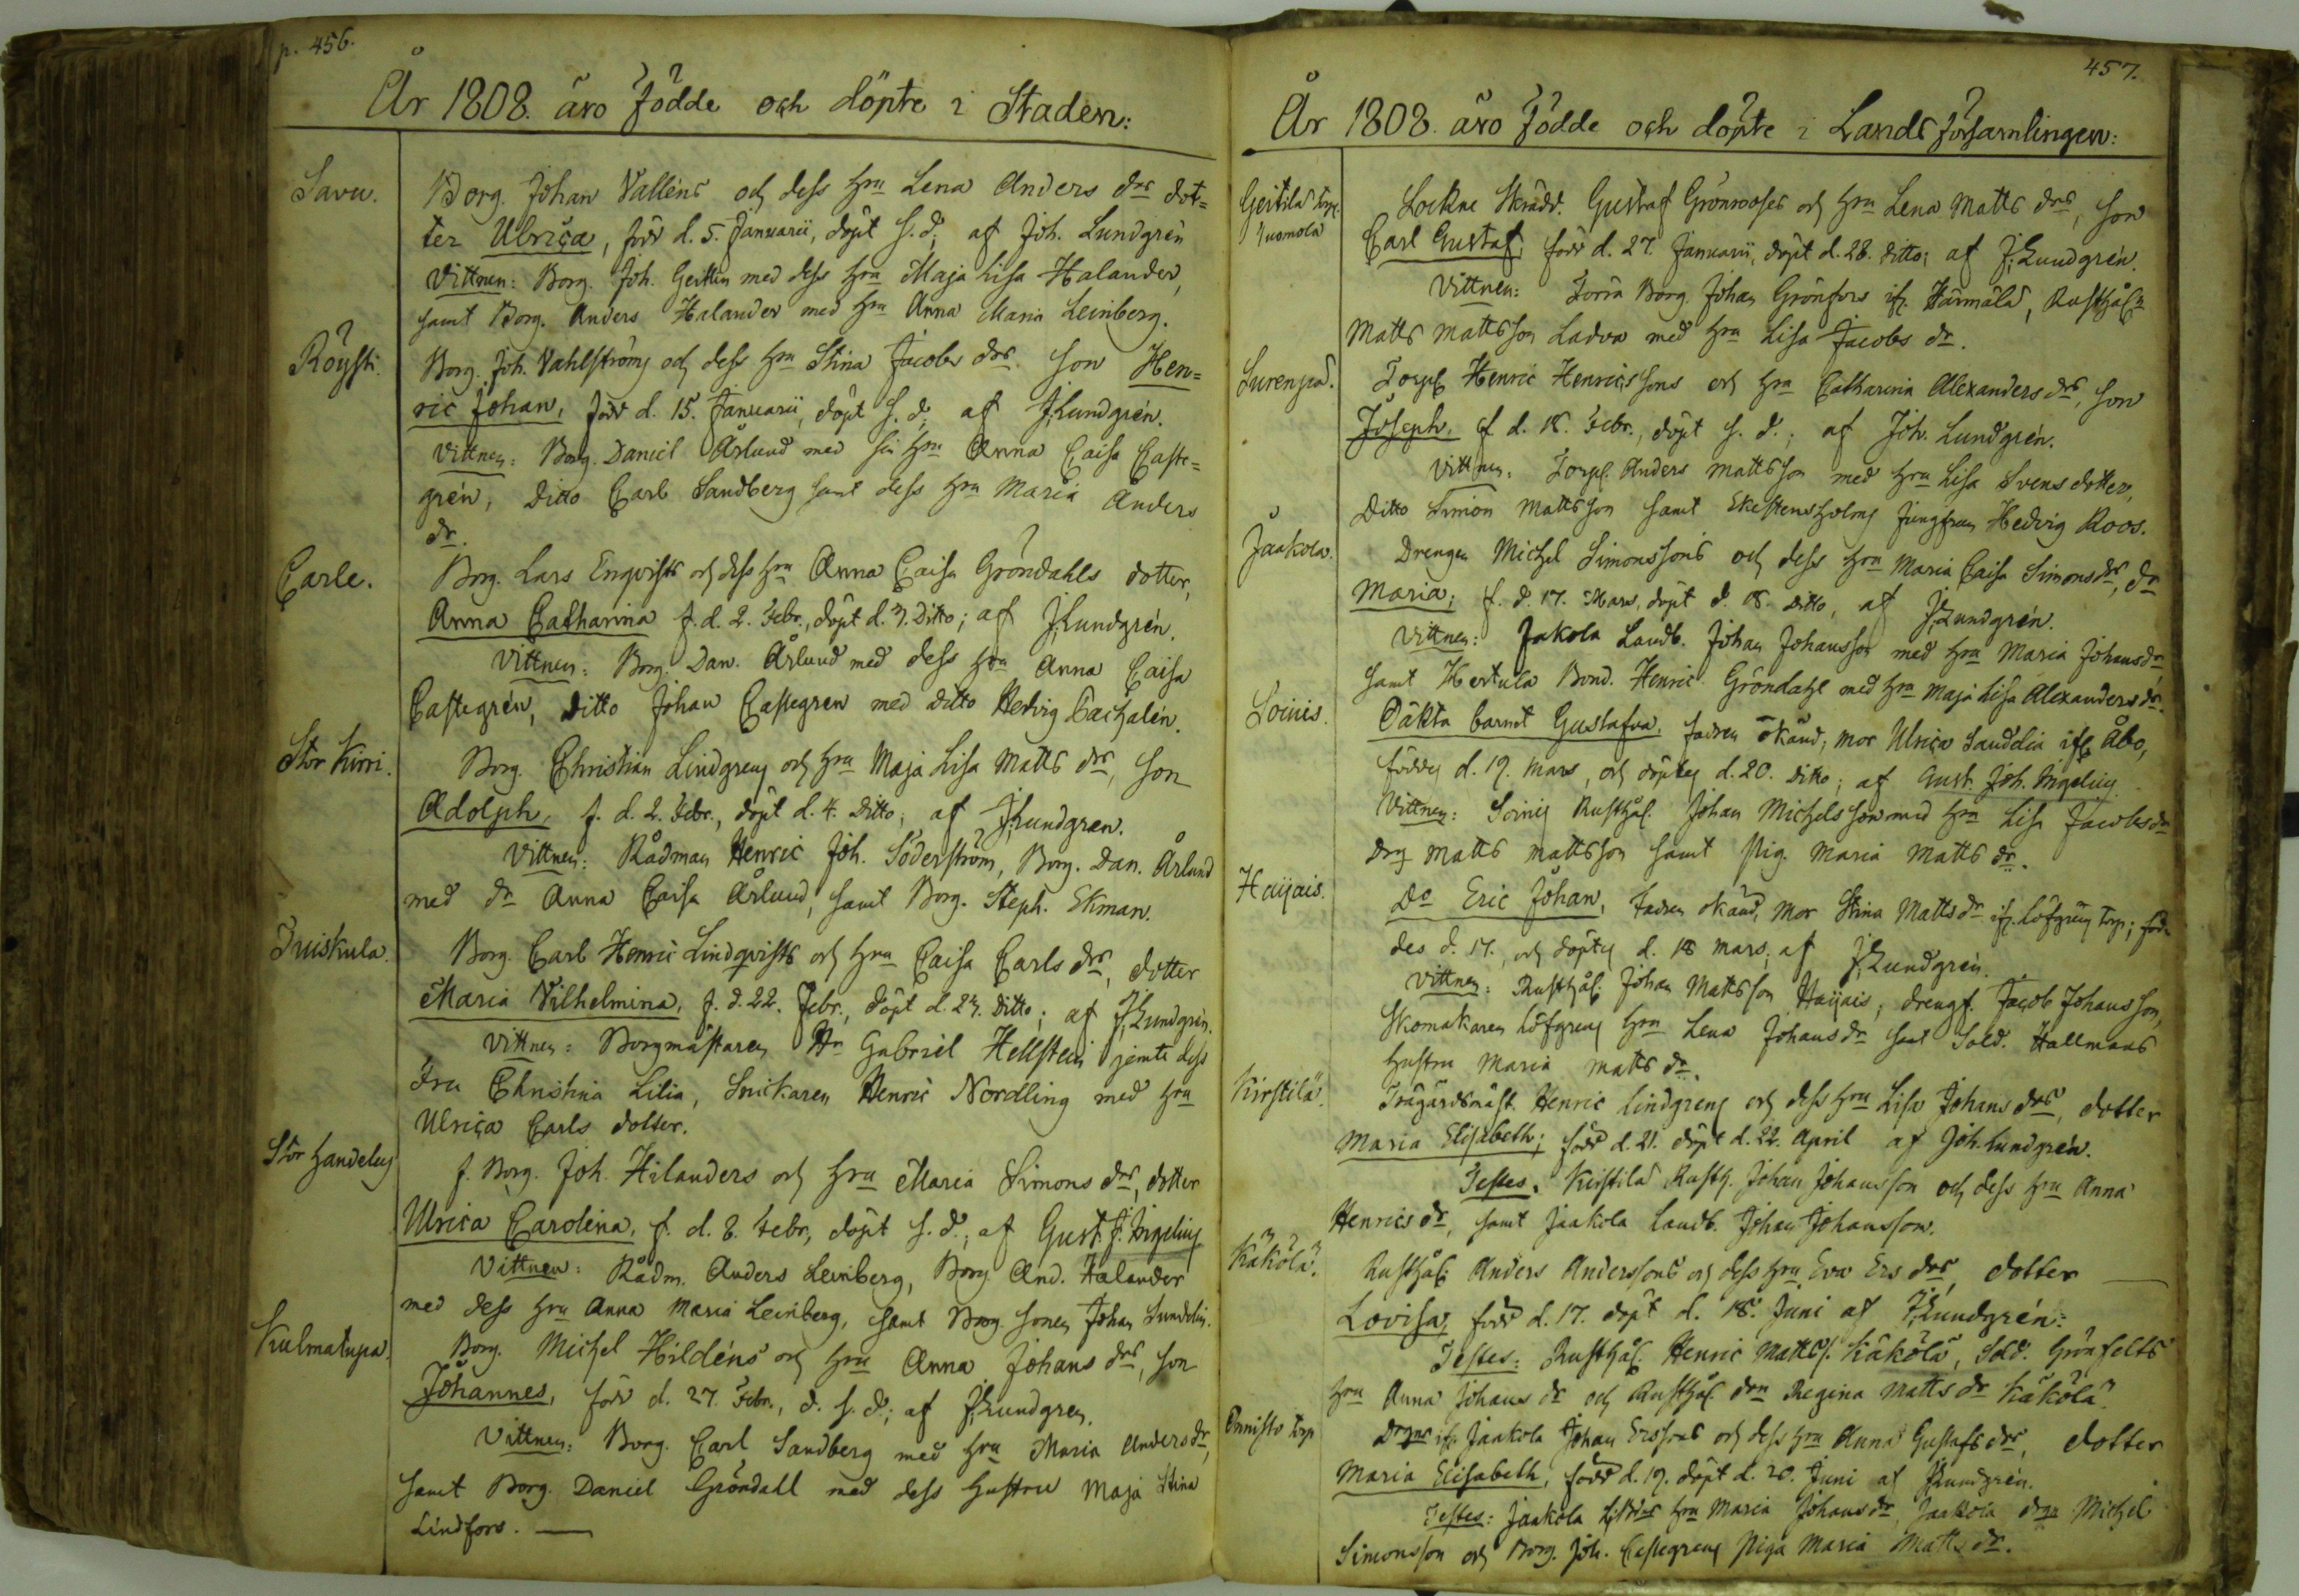 p. 456.
År 1808. äro födde och döpte i Staden:
Savu.
Borg. Johan Valléns och dess hru Lena Anders drs dot=
ter Ulrica, född d. 5. Januarii, döpt s. d; af Joh. Lundgrén
Vittnen: Borg. Joh. Geitlin med dess hru Maja Lisa Halander,
samt Borg. Anders Halander med hru Anna Maria Leinberg.
Röysti.
Borg. Joh. Vahlströms och dess hru Stina Jacobs drs son Hen=
ric Johan, född d. 15. Januarii, döpt s. d; af J. Lundgrén.
Vittnen: Borg. Daniel Årlund med sin hru Anna Caisa Caste=
grén, Ditto Carl Sandberg samt dess hru Maria Anders
dr.
Carle.
Borg. Lars Enqvists och dess hru Anna Caisa Gröndahls dotter,
Anna Catharina f. d. 2. Febr., döpt d. 3. Ditto; af J. Lundgrén.
Vittnen: Borg. Dan. Årlund med dess hru Anna Caisa
Castegrén, ditto Johan Castegren med ditto Hedvig Caihalén.
Stor Kirri.
Borg. Christian Lindgrens och hru Maja Lisa Matts drs, son
Adolph, f. d. 2. Febr., döpt d. 4. Ditto; af J. Lundgren.
Vittnen: Rådman Henric Joh. Söderström, Borg. Dan. Årlund
med dr Anna Caisa Årlund, samt Borg. Steph. Ekman.
Tuiskula.
Borg. Carl Henric Lindqvists och hru Caisa Carls drs, dotter
Maria Vilhelmina, f. d. 22. Febr., döpt d. 23. Ditto; af J. Lundgrén.
Vittnen: Borgmästaren Hr Gabriel Hellsten jemte dess
Fru Christina Lilia, Snickaren Henric Nordling med hru
Ulrica Carls dotter.
Stor Handelus
f. Borg. Joh. Hilanders och hru Maria Simons drs, dotter
Ulrica Carolina, f. d. 8. Febr., döpt s. d.; af Gust. J. Ingelius
Vittnen: Rådm. Anders Leinberg, Borg. And. Halander
med dess hru Anna Maria Leinberg, samt Borg. sonen Johan Sundelin.
Kulmatupa.
Borg. Michel Hildéns och hru Anna Johans drs, son
Johannes, född d. 27. Febr., d. s. d.; af J. Lundgren.
Vittnen: Borg. Carl Sandberg med hru Maria Anders dr,
samt Borg. Daniel Gröndall med dess hustru Maja Stina
Lindfors.
457.
År 1808. äro födde och döpte i Lands församlingen:
Geitila torp
Juomola
Sockne Skrädd. Gustaf Grönroses och hru Lena Matts drs, son
Carl Gustaf; född d. 27. Januarii, döpt d. 28. ditto; af J. Lundgrén.
Vittnen: Borg. Johan Grönfors ifr. Härmälä, Rusthåln
Matts Mattsson Ladva med hru Lisa Jacobs dr.
Surenpää.
Torp. Henric Henricssons och hru Catharina Alexanders drs, son
Joseph, f. d. 18. Febr., döpt s. d.; af Joh. Lundgrén.
Vittnen: Torp. Anders Mattsson med hru Lisa Svens dotter,
Ditto Simon Mattsson samt Ekestensholms Jungfrun Hedvig Roos.
Jaakola.
Drengen Michel Simonssons och dess hru Maria Caisa Simons drs, dr
Maria; f. d. 17. Mars, döpt d. 18. Ditto, af J. Lundgrén.
Vittnen: Jakola Landb. Johan Johansson med hru Maria Johans dr,
samt Hertula Bond. Henric Gröndahl med hru Maja Lisa Alexanders dr.
Soinis.
Oäkta barnet Gustafva, fadren okänd, mor Ulrica Sandelia ifr Åbo,
föddes d. 19. Mars, och döptes d. 20. ditto; af Gust. Joh. Ingelius
Vittnen: Soinis Rusthål. Johan Michelsson med hru Lisa Jacobs dr
drg Matts Mattsson samt pig. Maria Matts dr.
Haijais.
Do Eric Johan, Fadren okänd, Mor Stina Matts dr ifr. Löfgrens torp; föd-
des d. 17., och döptes d. 18 Mars; af J. Lundgrén.
Vittnen: Rusthål. Johan Mattsson Haijais, drengf. Jacob Johansson,
Skomakaren Löfgrens hru Lena Johans dr samt Sold. Hallmans
hustru Maria Matts dr.
Kirstilä.
Trägårdsmäst. Henric Lindgrens och dess hru Lisa Johans drs, dotter
Maria Elisabeth; född d. 21. döpt d. 22. April af Joh. Lundgrén.
Testes. Kirstilä Rusth. Johan Johansson och dess hru Anna
Henrics dr, samt Jaakola Landb. Johan Johansson.
Käkölä.
Rusthål. Anders Anderssons och dess hru Eva Ers drs, dotter
Lovisa, född d. 17. döpt d. 18. Juni af J. Lundgrén:
Testes: Rusthål. Henric Matts s. Käkölä, Sold. Grönfelts
hru Anna Johans dr och Rusthål. drn Regina Matts dr Käkölä.
Onnisto torp
Drgns ifr. Jaakola Johan Erssons och dess hru Anna Gustafs drs, dotter
Maria Elisabeth, född d. 19. döpt d. 20. Juni af J. Lundgrén.
Testes: Jaakola hru Maria Johans dr, Jaakola drgn Michel
Simonsson och Borg. Joh. Castegrens piga Maria Matts dr.